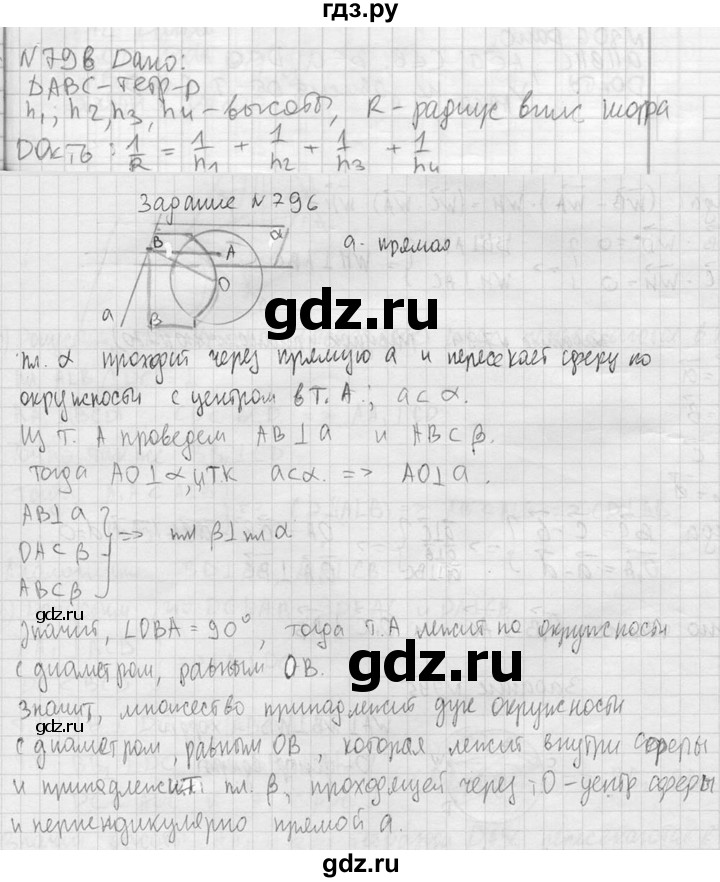 гдз.ру
N 79в Дано:
DABC - тетр-р
h1; h2, h3, h4 - высоты, R - радиус впис шара
Док-ть: 1/R = 1/h1 + 1/h2 + 1/h3 + 1/h4
Задание N 796
α
B
A
O
a
B
a - прямая
gdz.ru
пл. α проходит через прямую a и пересекает сферу по
окружности с центром в т. A; a ⊂ α.
Из т. A проведем AB ⊥ a и AB ⊂ β.
тогда AO ⊥ α, т.к a ⊂ α. => AO ⊥ a.
AB ⊥ a
OA ⊂ β
AB ⊂ β
=> пл β ⊥ пл α
gdz.ru
gdz.ru
Значит, ∠OBA = 90°, тогда т. A лежит по окружности
с диаметром, равным OB.
gdz.ru
Значит, множество принадлежит дуге окружности
с диаметром, равным OB, которая лежит внутри сферы
и принадлежит пл. β, проходящей через т. O - центр сферы
gdz.ru
и перпендикулярно прямой a.
gdz.ru